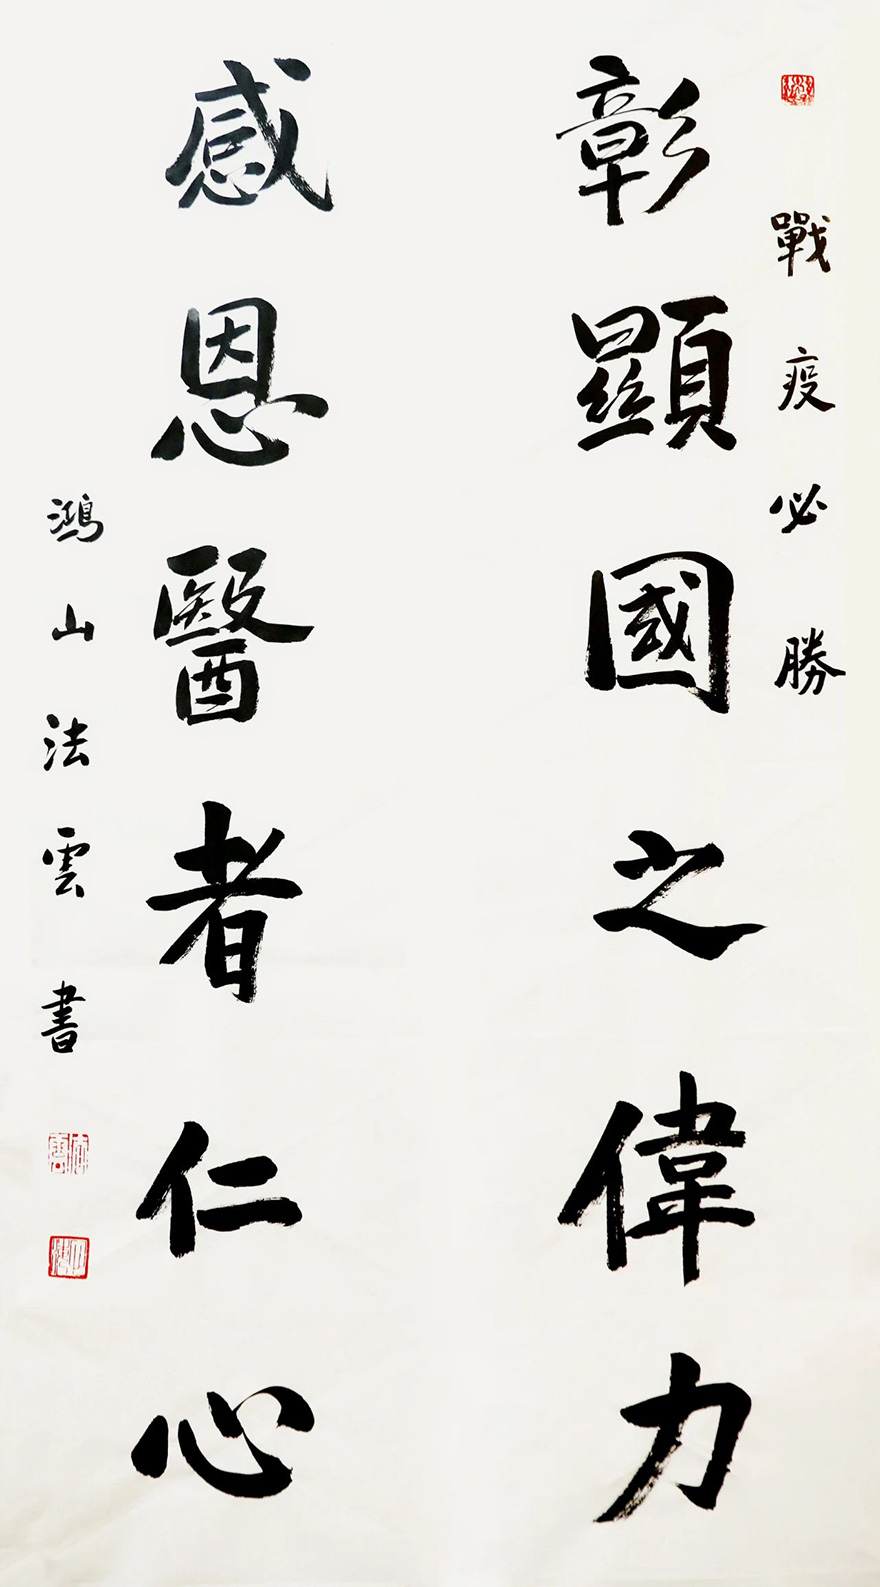 戰疫必勝
彰顯國之偉力
感恩醫者仁心
鴻山法雲書